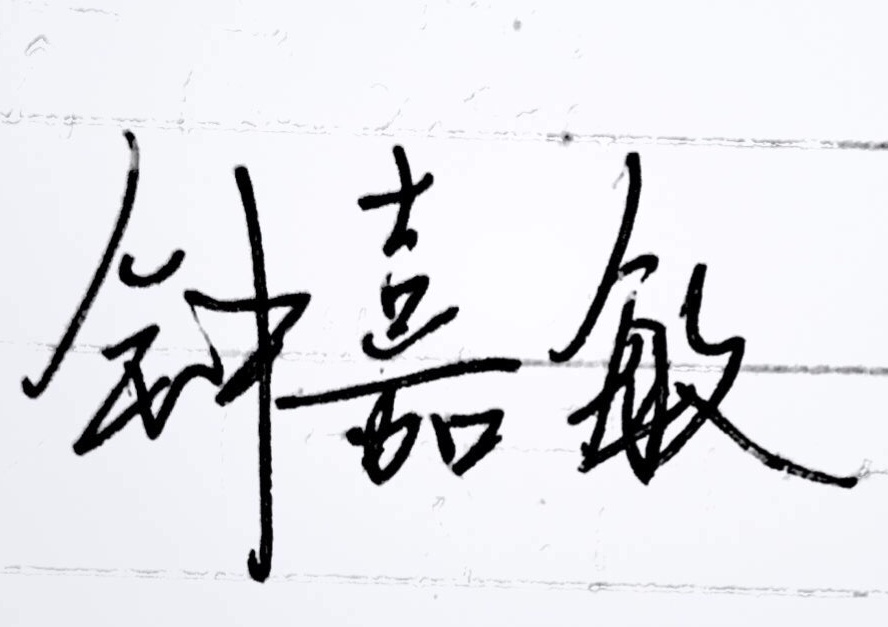 钟嘉敏